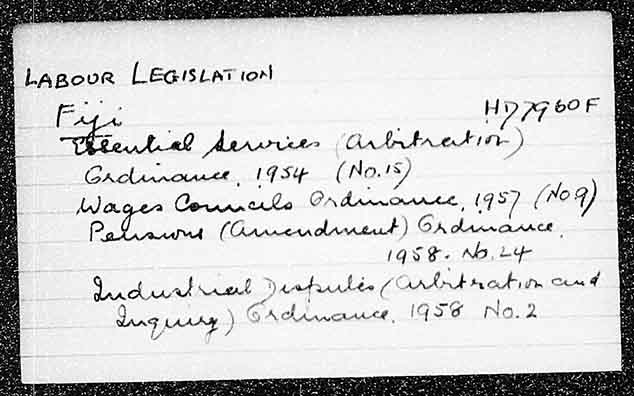 LABOUR LEGISLATION
Fiji HD7960F
Essential Services (Arbitration)
Ordinance, 1954 (No.15)
Wages Councils Ordinance, 1957 (No 9)
Pensions (Amendment) Ordinance,
1958. No. 24
Industrial Disputes (Arbitration and
Inquiry) Ordinance, 1958 No. 2